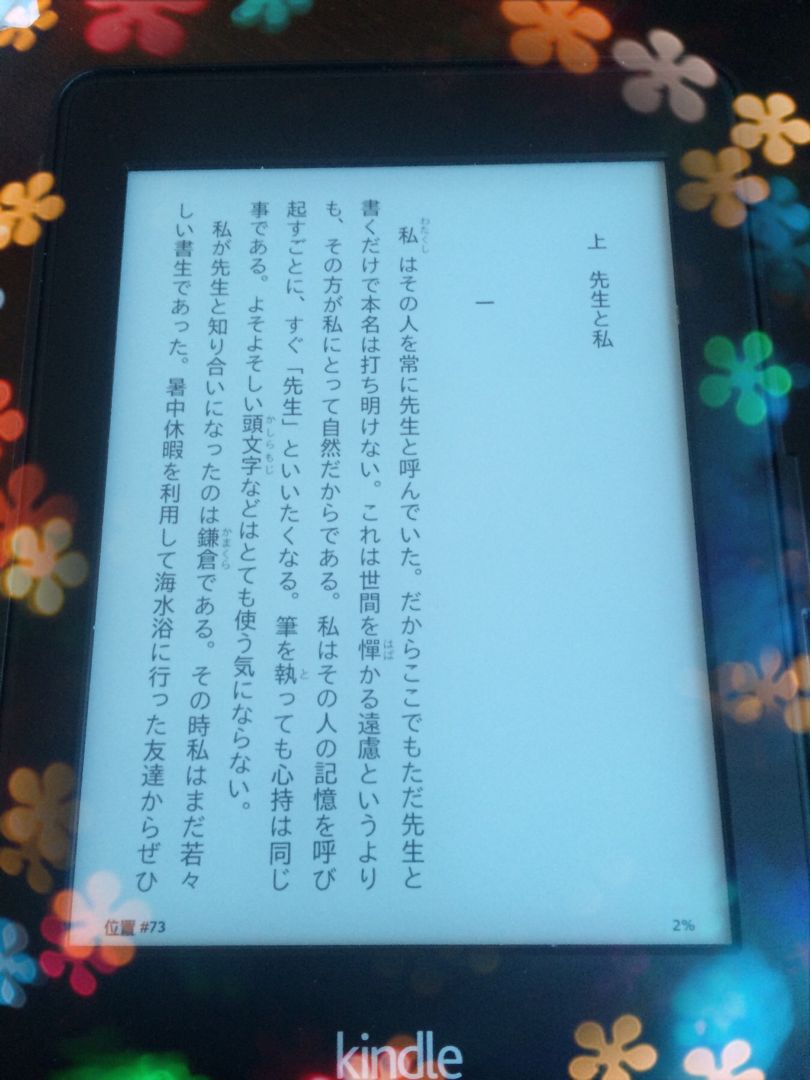 上 先生と私
一
私はその人を常に先生と呼んでいた。だからここでもただ先生と
わたくし
書くだけで本名は打ち明けない。これは世間を憚かる遠慮というより
はば
も、その方が私にとって自然だからである。私はその人の記憶を呼び
起すごとに、すぐ「先生」といいたくなる。筆を執っても心持は同じ
と
事である。よそよそしい頭文字などはとても使う気にならない。
かしらもじ
私が先生と知り合いになったのは鎌倉である。その時私はまだ若々
かまくら
しい書生であった。暑中休暇を利用して海水浴に行った友達からぜひ
位置 #73
2%
kindle